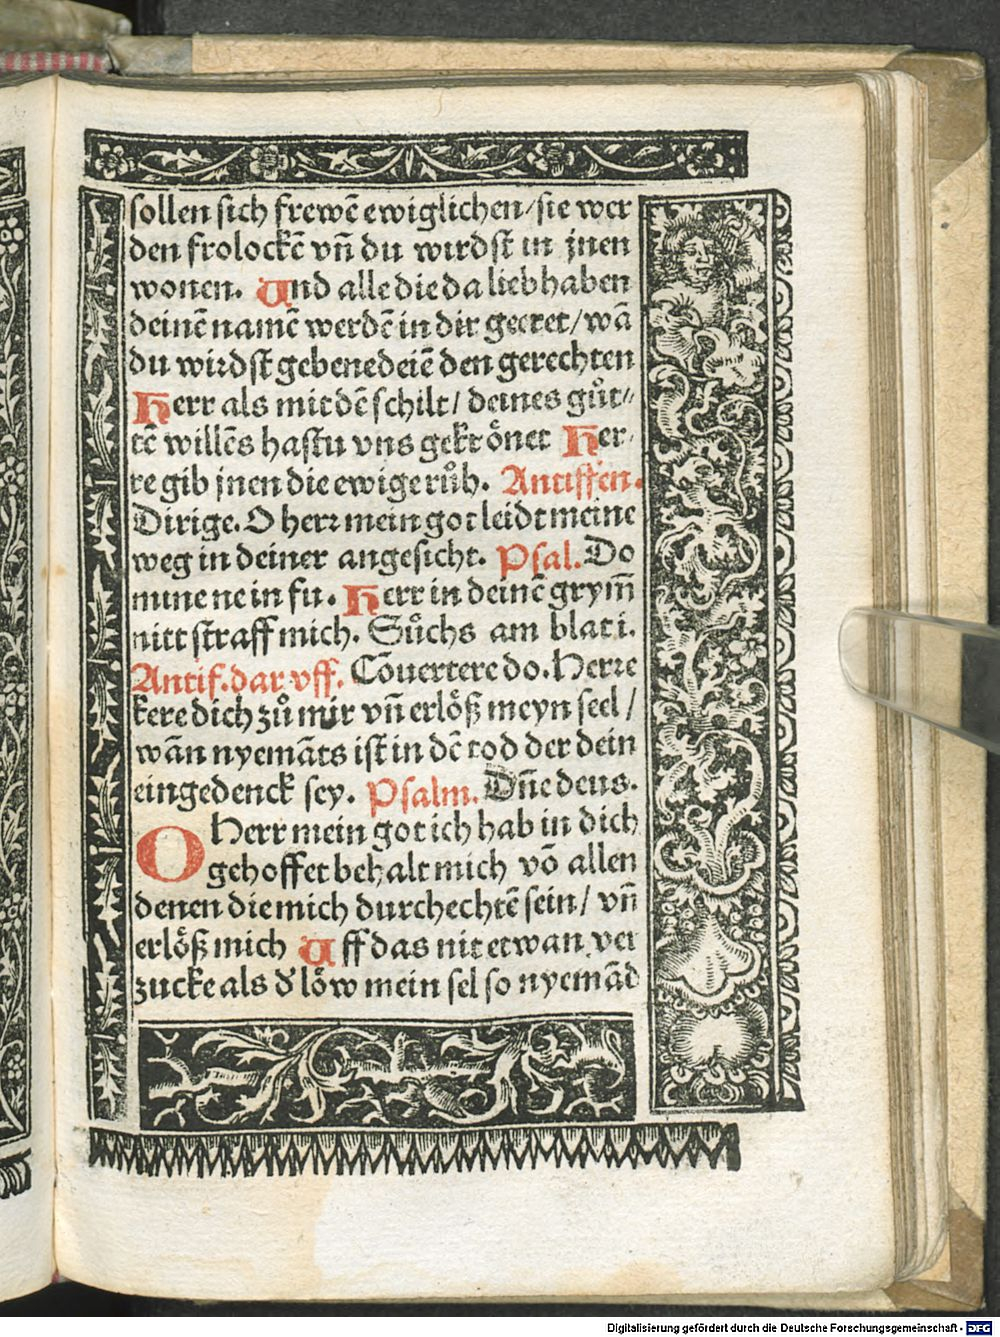 sollen sich frewē ewiglichen/sie wer
den frolockē vñ du wirdst in jnen
wonen. Und alle die da lieb haben
deinē namē werdē in dir geeret/wā
du wirdst gebenedeiē den gerechten
Herr als mit dē schilt/ deines gůt//
tē willēs hastu vns gekrönet Her/
re gib jnen die ewige růh. Antiffen.
Dirige. O herr mein got leidt meine
weg in deiner angesicht. Psal. Do
mine ne in fu. Herr in deinē grym̄
nitt straff mich. Sůchs am blat i.
Antif. dar vff. Cōuertere do. Herre
kere dich zů mir vñ erlöß meyn seel/
wān nyemāts ist in dē tod der dein
eingedenck sey. Psalm. Dn̄e deus.
O Herr mein got ich hab in dich
gehoffet behalt mich vō allen
denen die mich durchechtē sein/ vñ
erlöß mich Uff das nit etwan ver
zucke als d' löw mein sel so nyemād
Digitalisierung gefördert durch die Deutsche Forschungsgemeinschaft - DFG